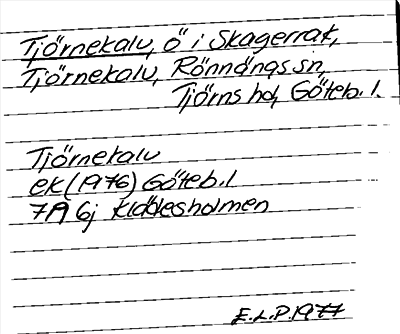 Tjörnekalv, ö i Skagerrak,
Tjörnekalv, Rönnängs sn,
Tjörns hd, Göteb. l.
Tjörnekalv
ek (1976) Göteb. l
7A 6j Kläddesholmen
E.L.P. 1977